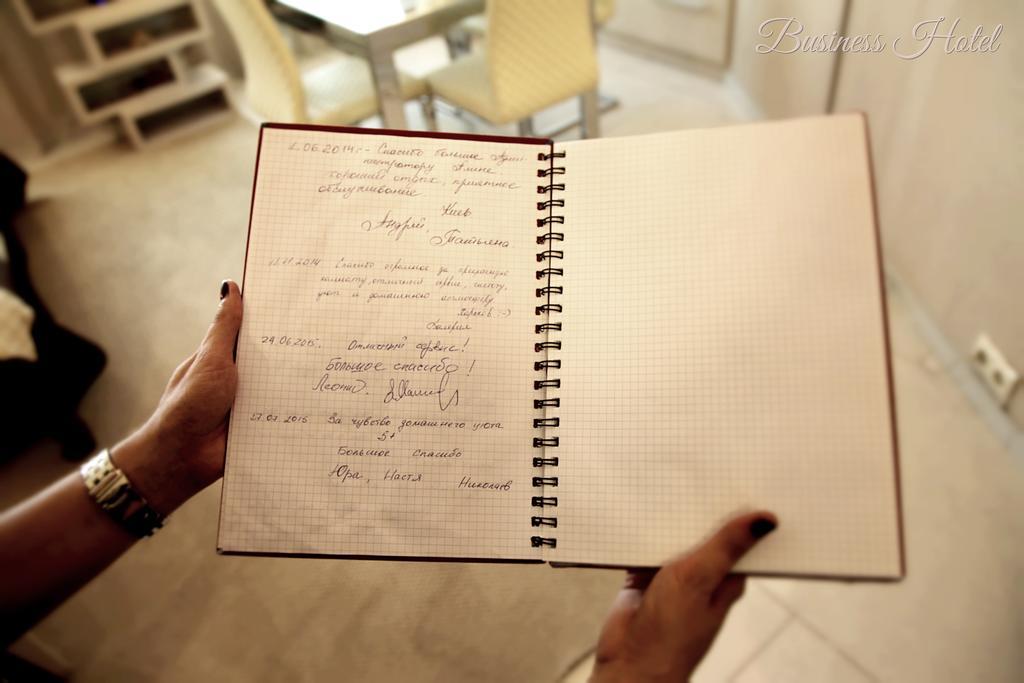 Business Hotel
1.06.2014г.- Спасибо большое Админ-
нистратору Алине.
Хороший отдых, приятное
обслуживание.
Киев
Андрей,
Татьяна
.2014 Спасибо огромное за прекрасную
комнату, отличный сервис, чистоту,
уют и домашнюю атмосферу.
Харьков :-)
Валерия
29.06.2015. Отличный сервис!
Большое спасибо!
Леонид.
27.07.2015 За чувство домашнего уюта
5+
Большое спасибо
Юра, Настя Николаев